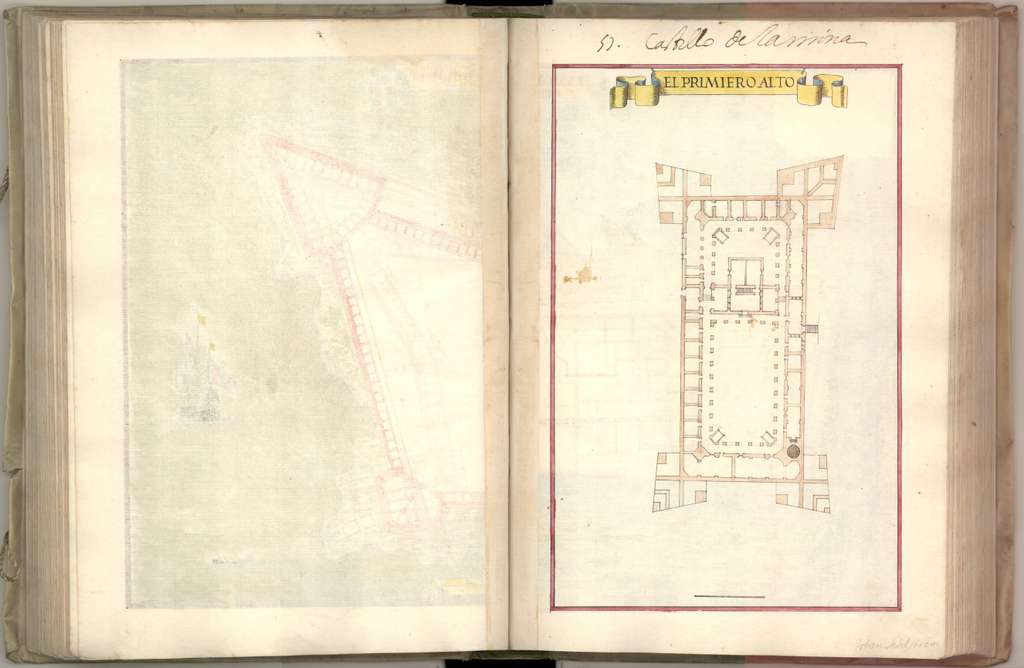 51. Castillo de la mina
EL PRIMIERO ALTO